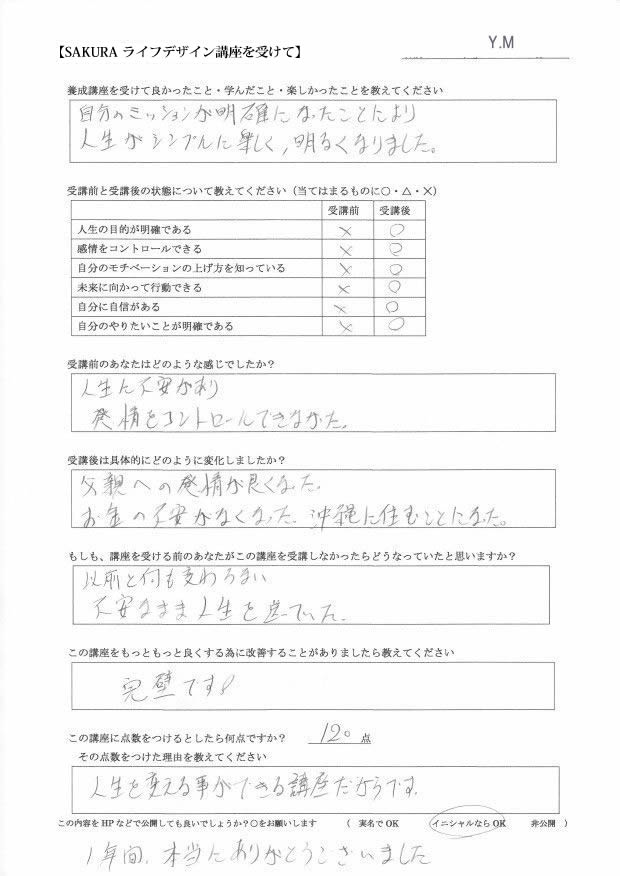 Y.M
【SAKURA ライフデザイン講座を受けて】
養成講座を受けて良かったこと・学んだこと・楽しかったことを教えてください
自分のミッションが明確になったことにより
人生がシンプルに楽しく,明るくなりました。
受講前と受講後の状態について教えてください（当てはまるものに○・△・×）
受講前 受講後
人生の目的が明確である × ○
感情をコントロールできる × ○
自分のモチベーションの上げ方を知っている × ○
未来に向かって行動できる × ○
自分に自信がある × ○
自分のやりたいことが明確である × ○
受講前のあなたはどのような感じでしたか？
人生に不安があり
感情をコントロールできなかった。
受講後は具体的にどのように変化しましたか？
父親への感情が良くなった。
お金の不安がなくなった。沖縄に住むことになった。
もしも、講座を受ける前のあなたがこの講座を受講しなかったらどうなっていたと思いますか？
以前と何も変わらない
不安なまま人生を送っていた。
この講座をもっともっと良くする為に改善することがありましたら教えてください
完璧です!
この講座に点数をつけるとしたら何点ですか？ 120 点
その点数をつけた理由を教えてください
人生を変える事ができる講座だからです。
この内容を HP などで公開しても良いでしょうか？○をお願いします （ 実名で OK イニシャルなら OK 非公開 ）
1年間、本当にありがとうございました